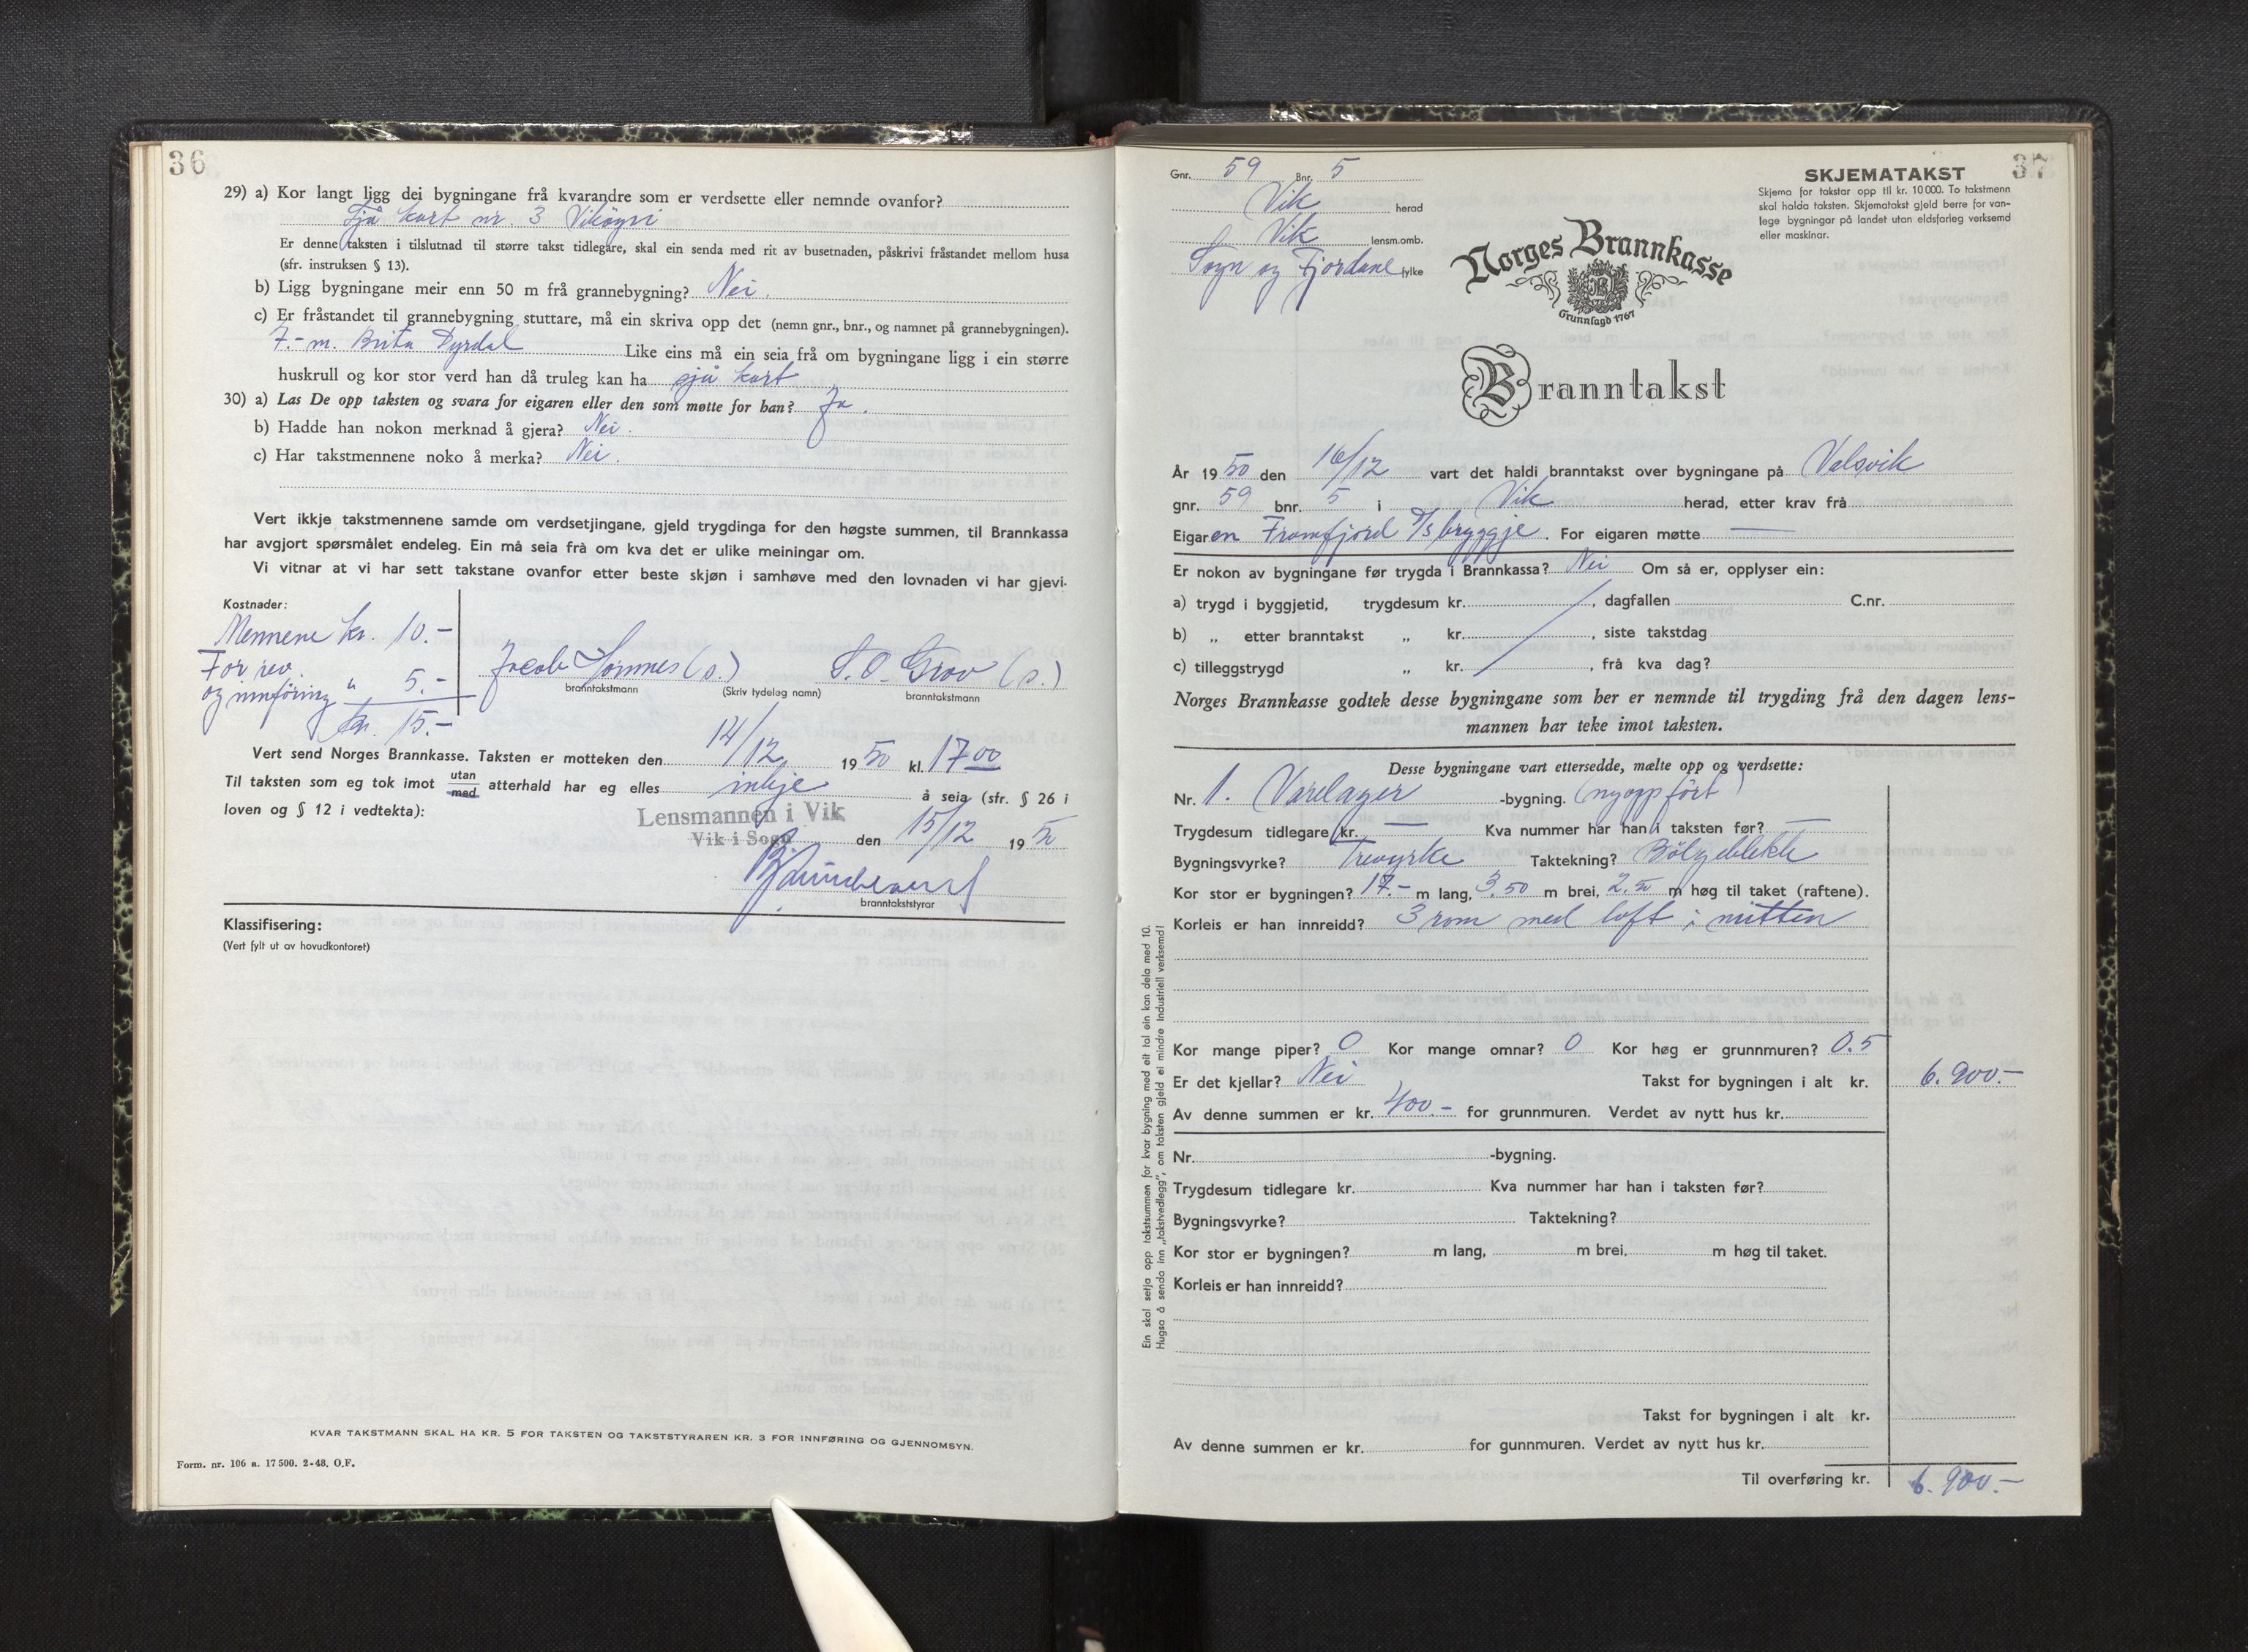 36
29) a) Kor langt ligg dei bygningane frå kvarandre som er verdsette eller nemnde ovanfor?
Sjå kart nr. 3 Vikøyri
Er denne taksten i tilslutnad til større takst tidlegare, skal ein senda med rit av busetnaden, påskrivi fråstandet mellom husa
(sfr. instruksen § 13).
b) Ligg bygningane meir enn 50 m frå grannebygning? Nei.
c) Er fråstandet til grannebygning stuttare, må ein skriva opp det (nemn gnr., bnr., og namnet på grannebygningen).
7.- m. Brita Dyrdal Like eins må ein seia frå om bygningane ligg i ein større
huskrull og kor stor verd han då truleg kan ha sjå kart
30) a) Las De opp taksten og svara for eigaren eller den som møtte for han? Ja.
b) Hadde han nokon merknad å gjera? Nei.
c) Har takstmennene noko å merka? Nei.
Vert ikkje takstmennene samde om verdsetjingane, gjeld trygdinga for den høgste summen, til Brannkassa
har avgjort spørsmålet endeleg. Ein må seia frå om kva det er ulike meiningar om.
Vi vitnar at vi har sett takstane ovanfor etter beste skjøn i samhøve med den lovnaden vi har gjevi.
Kostnader:
Mennene kr. 10.-
For rev.
og innføring " 5.-
kr. 15.-
Jacob Hønnes (s.) S. O. Grov (s.)
branntakstmann (Skriv tydeleg namn) branntakstmann
Vert send Norges Brannkasse. Taksten er motteken den 14/12 1950 kl. 17 00
Til taksten som eg tok imot utan med atterhald har eg elles inkje å seia (sfr. § 26 i
loven og § 12 i vedtekta):
Lensmannen i Vik
Vik i Sogn den 15/12 1950
branntakststyrar
Klassifisering:
(Vert fylt ut av hovudkontoret)
KVAR TAKSTMANN SKAL HA KR. 5 FOR TAKSTEN OG TAKSTSTYRAREN KR. 3 FOR INNFØRING OG GJENNOMSYN.
Form. nr. 106 a. 17 500. 2-48. O.F.
37
Gnr. 59 Bnr. 5
Vik herad
Vik lensm.omb.
Sogn og Fjordane fylke
SKJEMATAKST
Skjema for takstar opp til kr. 10 000. To takstmenn
skal halda taksten. Skjematakst gjeld berre for van-
lege bygningar på landet utan eldsfarleg verksemd
eller maskinar.
Norges Brannkasse
Grunnlagd 1767
Branntakst
År 1950 den 16/12 vart det haldi branntakst over bygningane på Valsvik
gnr. 59 bnr. 5 i Vik herad, etter krav frå
Eigaren Framfjord D/S bryggje. For eigaren møtte —
Er nokon av bygningane før trygda i Brannkassa? Nei Om så er, opplyser ein:
a) trygd i byggjetid, trygdesum kr. , dagfallen C.nr.
b) „ etter branntakst „ kr. , siste takstdag
c) tilleggstrygd „ kr. , frå kva dag?
Norges Brannkasse godtek desse bygningane som her er nemnde til trygding frå den dagen lens-
mannen har teke imot taksten.
Desse bygningane vart ettersedde, mælte opp og verdsette:
Nr. 1. Varelager -bygning. (nyoppført)
Trygdesum tidlegare kr. — Kva nummer har han i taksten før? —
Bygningsvyrke? Trevyrke Taktekning? Bölgeblekk
Kor stor er bygningen? 17.- m lang, 3.50 m brei, 2.50 m høg til taket (raftene).
Korleis er han innreidd? 3 rom med loft i mitten
Kor mange piper? 0 Kor mange omnar? 0 Kor høg er grunnmuren? 0.5
Er det kjellar? Nei Takst for bygningen i alt kr. 6.900.-
Av denne summen er kr. 400.- for grunnmuren. Verdet av nytt hus kr.
Nr. -bygning.
Trygdesum tidlegare kr. Kva nummer har han i taksten før?
Bygningsvyrke? Taktekning?
Kor stor er bygningen? m lang, m brei, m høg til taket.
Korleis er han innreidd?
Takst for bygningen i alt kr.
Av denne summen er kr. for gunnmuren. Verdet av nytt hus kr.
Til overføring kr. 6.900.-
Ein skal setja opp takstsummen for kvar bygning med eit tal ein kan dela med 10.
Hugsa å senda inn „takstvedlegg", om taksten gjeld ei mindre industriell verksemd!